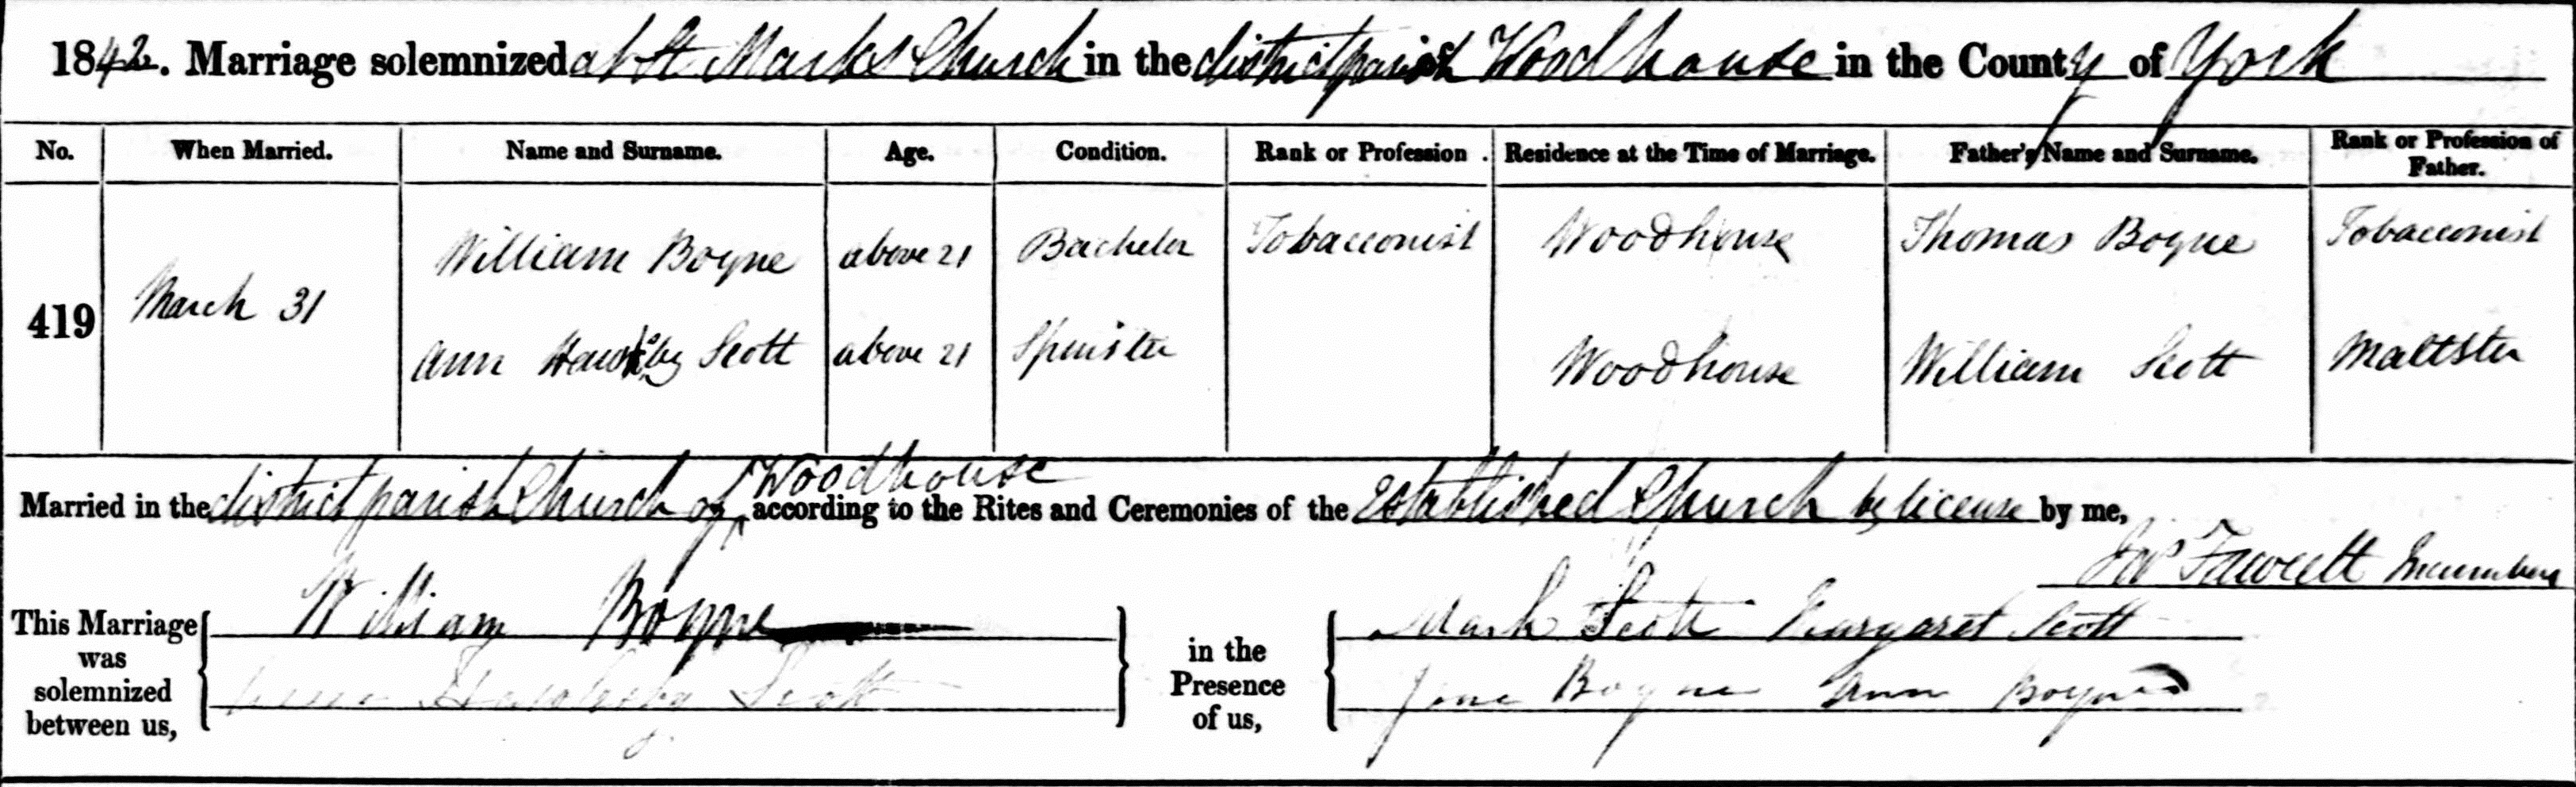 1842. Marriage solemnized at St Marks Church in the district parish Woodhouse in the County of York
No. When Married. Name and Surname. Age. Condition. Rank or Profession. Residence at the Time of Marriage. Father's Name and Surname. Rank or Profession of Father.
419 March 31 William Boyne above 21 Bachelor Tobacconist Woodhouse Thomas Boyne Tobacconist
Ann Scott above 21 Spinster Woodhouse William Scott Maltster
Woodhouse
Married in the district parish Church of according to the Rites and Ceremonies of the Established Church by license by me,
Jno Fawcett Incumbent
This Marriage was solemnized between us, William Boyne in the Presence of us, Mark Scott Margaret Scott
Scott Jane Boyne Ann Boyne